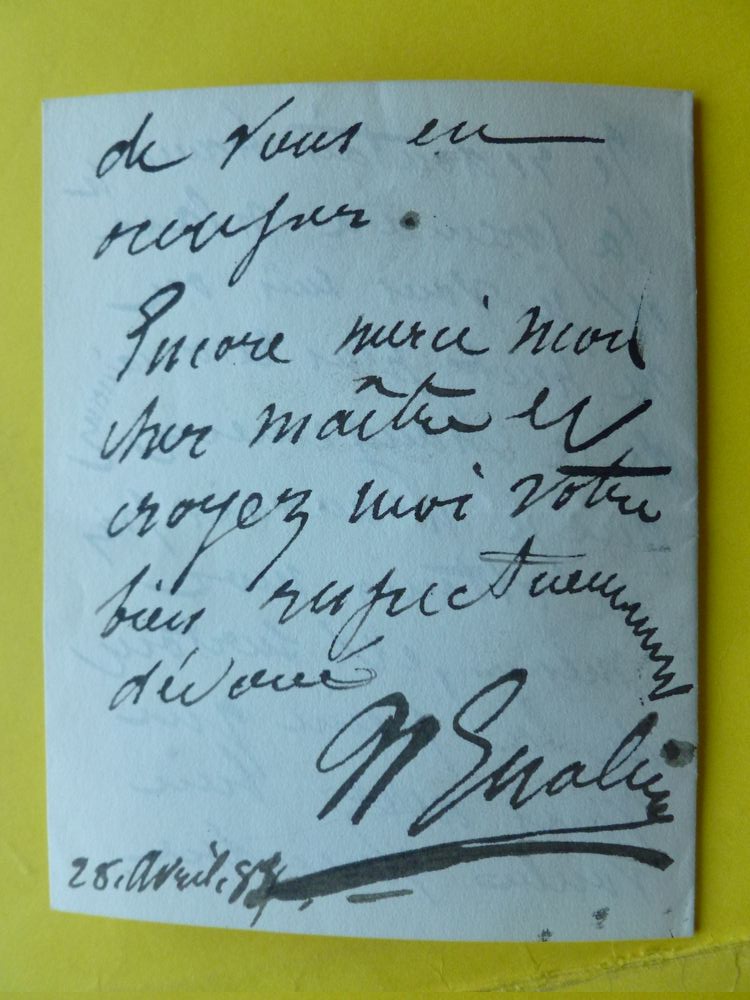 de vous en
occuper.
Encore merci mon
cher maître et
croyez moi votre
bien respectueusement
dévoué
28. Avril.